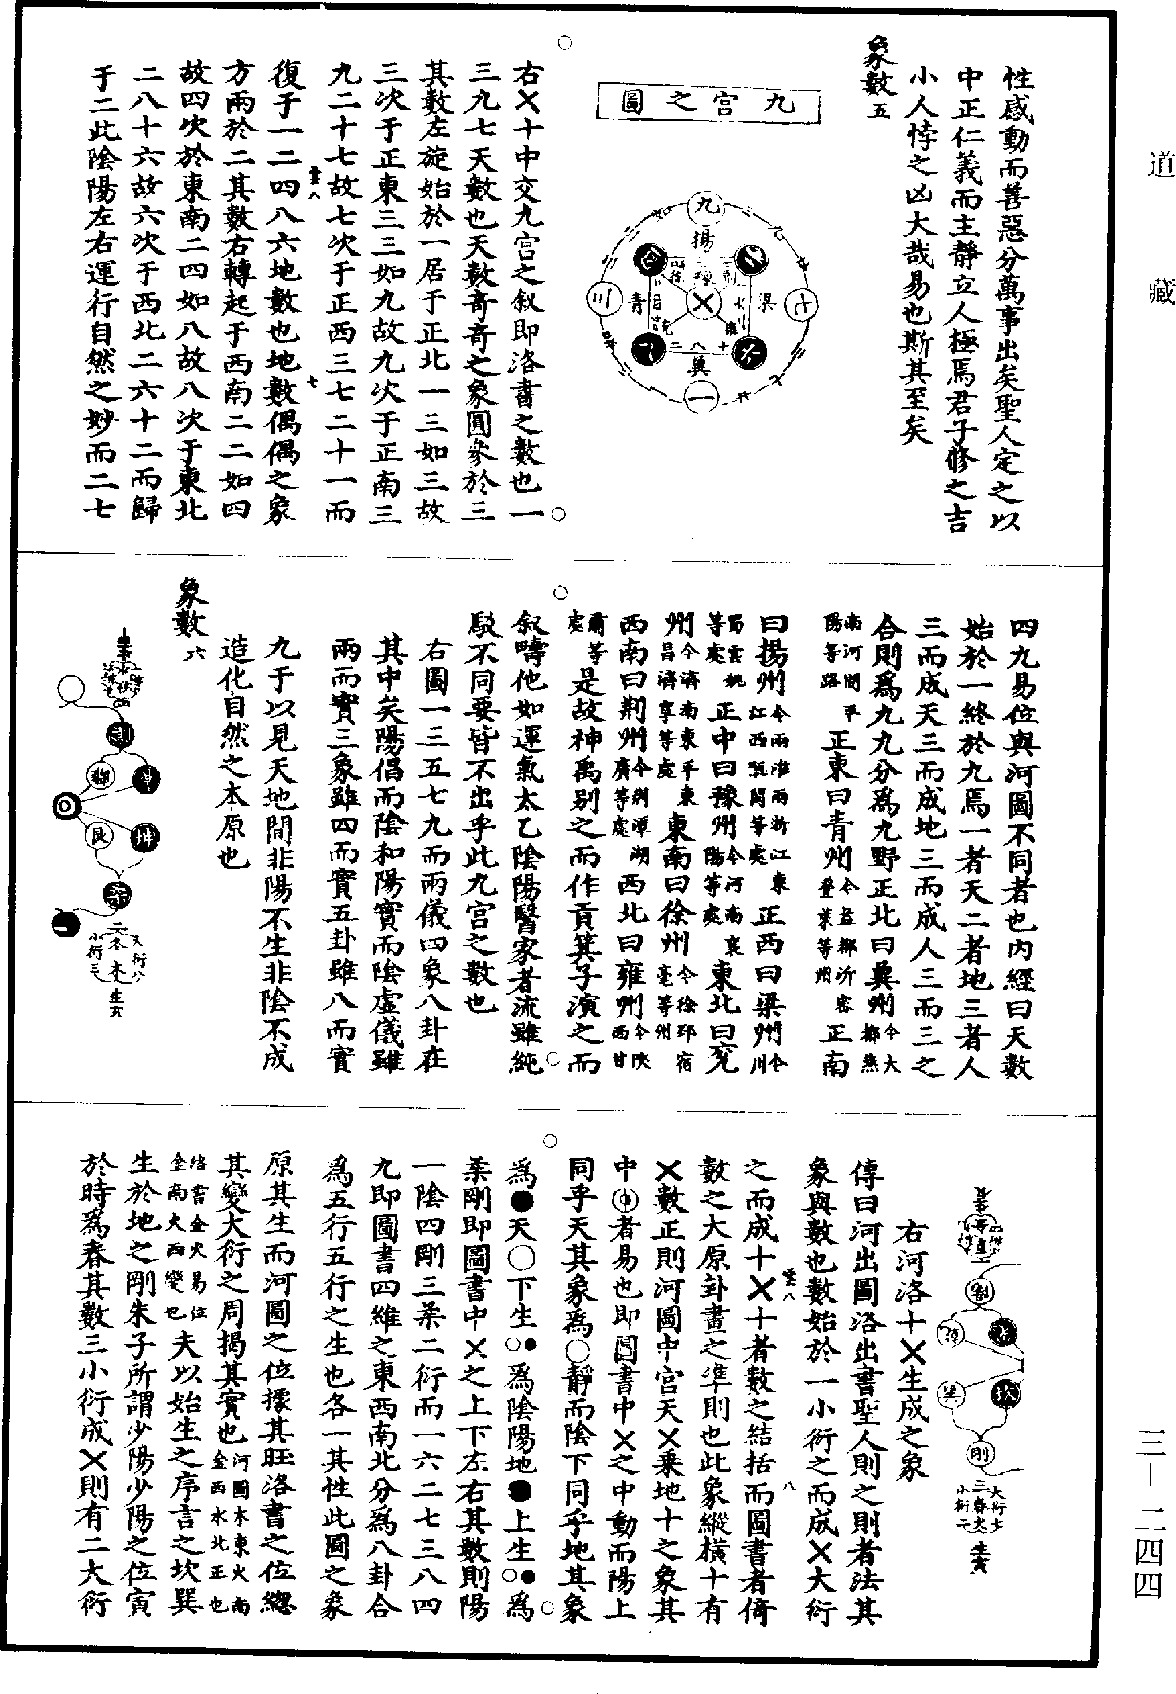 道藏
性感動而善惡分萬事出矣聖人定之以
中正仁義而主靜立人極焉君子修之吉
小人悖之凶大哉易也斯其至矣
象數五
九宫之圖
九
揚
青
梁
冀
一
右㐅十中交九宫之叙即洛書之數也一
三九七天數也天數奇奇之象圓參於三
其數左旋始於一居于正北一三如三故
三次于正東三三如九故九次于正南三
九二十七故七次于正西三七二十一而
復于一二四八六地數也地數偶偶之象
方兩於二其數右轉起于西南二二如四
故四次於東南二四如八故八次于東北
二八十六故六次于西北二六十二而歸
于二此陰陽左右運行自然之妙而二七
四九易位與河圖不同者也内經曰天數
始於一終於九焉一者天二者地三者人
三而成天三而成地三而成人三而三之
合則爲九九分爲九野正北曰冀州今大都燕
南河間平陽等路正東曰青州今益都沂密登萊等州正南
曰揚州今兩淮兩浙江東江西甌閩等處正西曰梁州今川
蜀雲桃等處正中曰豫州今河南襄陽等處東北曰兖
州今濟南東平東昌濟寧等處東南曰徐州今徐邳宿亳等州
西南曰荆州今荆潭湖廣等處西北曰雍州今陝西甘
肅等處是故神禹别之而作貢箕子演之而
叙疇他如運氣太乙陰陽醫家者流雖純
駁不同要皆不出乎此九宫之數也
右圖一三五七九而兩儀四象八卦在
其中矣陽倡而陰和陽實而陰虚儀雖
兩而實三象雖四而實五卦雖八而實
九于以見天地間非陽不生非陰不成
造化自然之本原也
象數六
右河洛十㐅生成之象
傳曰河出圖洛出書聖人則之則者法其
象與數也數始於一小衍之而成㐅大衍
之而成十㐅十者數之結括而圖書者倚
數之大原卦畫之準則也此象縱横十有
㐅數正則河圖中宫天㐅乗地十之象其
中者易也即圖書中㐅之中動而陽上
同乎天其象爲○靜而陰下同乎地其象
爲●天○下生○●爲陰陽地●上生○●爲
柔剛即圖書中㐅之上下左右其數則陽
一陰四剛三柔二衍而一六二七三八四
九即圖書四維之東西南北分爲八卦合
爲五行五行之生也各一其性此圖之象
原其生而河圖之位據其旺洛書之位緫
其變大衍之周揭其實也河圖木東火南金西水北正也
洛書金火易位金南火西變也夫以始生之序言之坎巽
生於地之剛朱子所謂少陽少陽之位寅
於時爲春其數三小衍成㐅則有二大衍
三—二四四